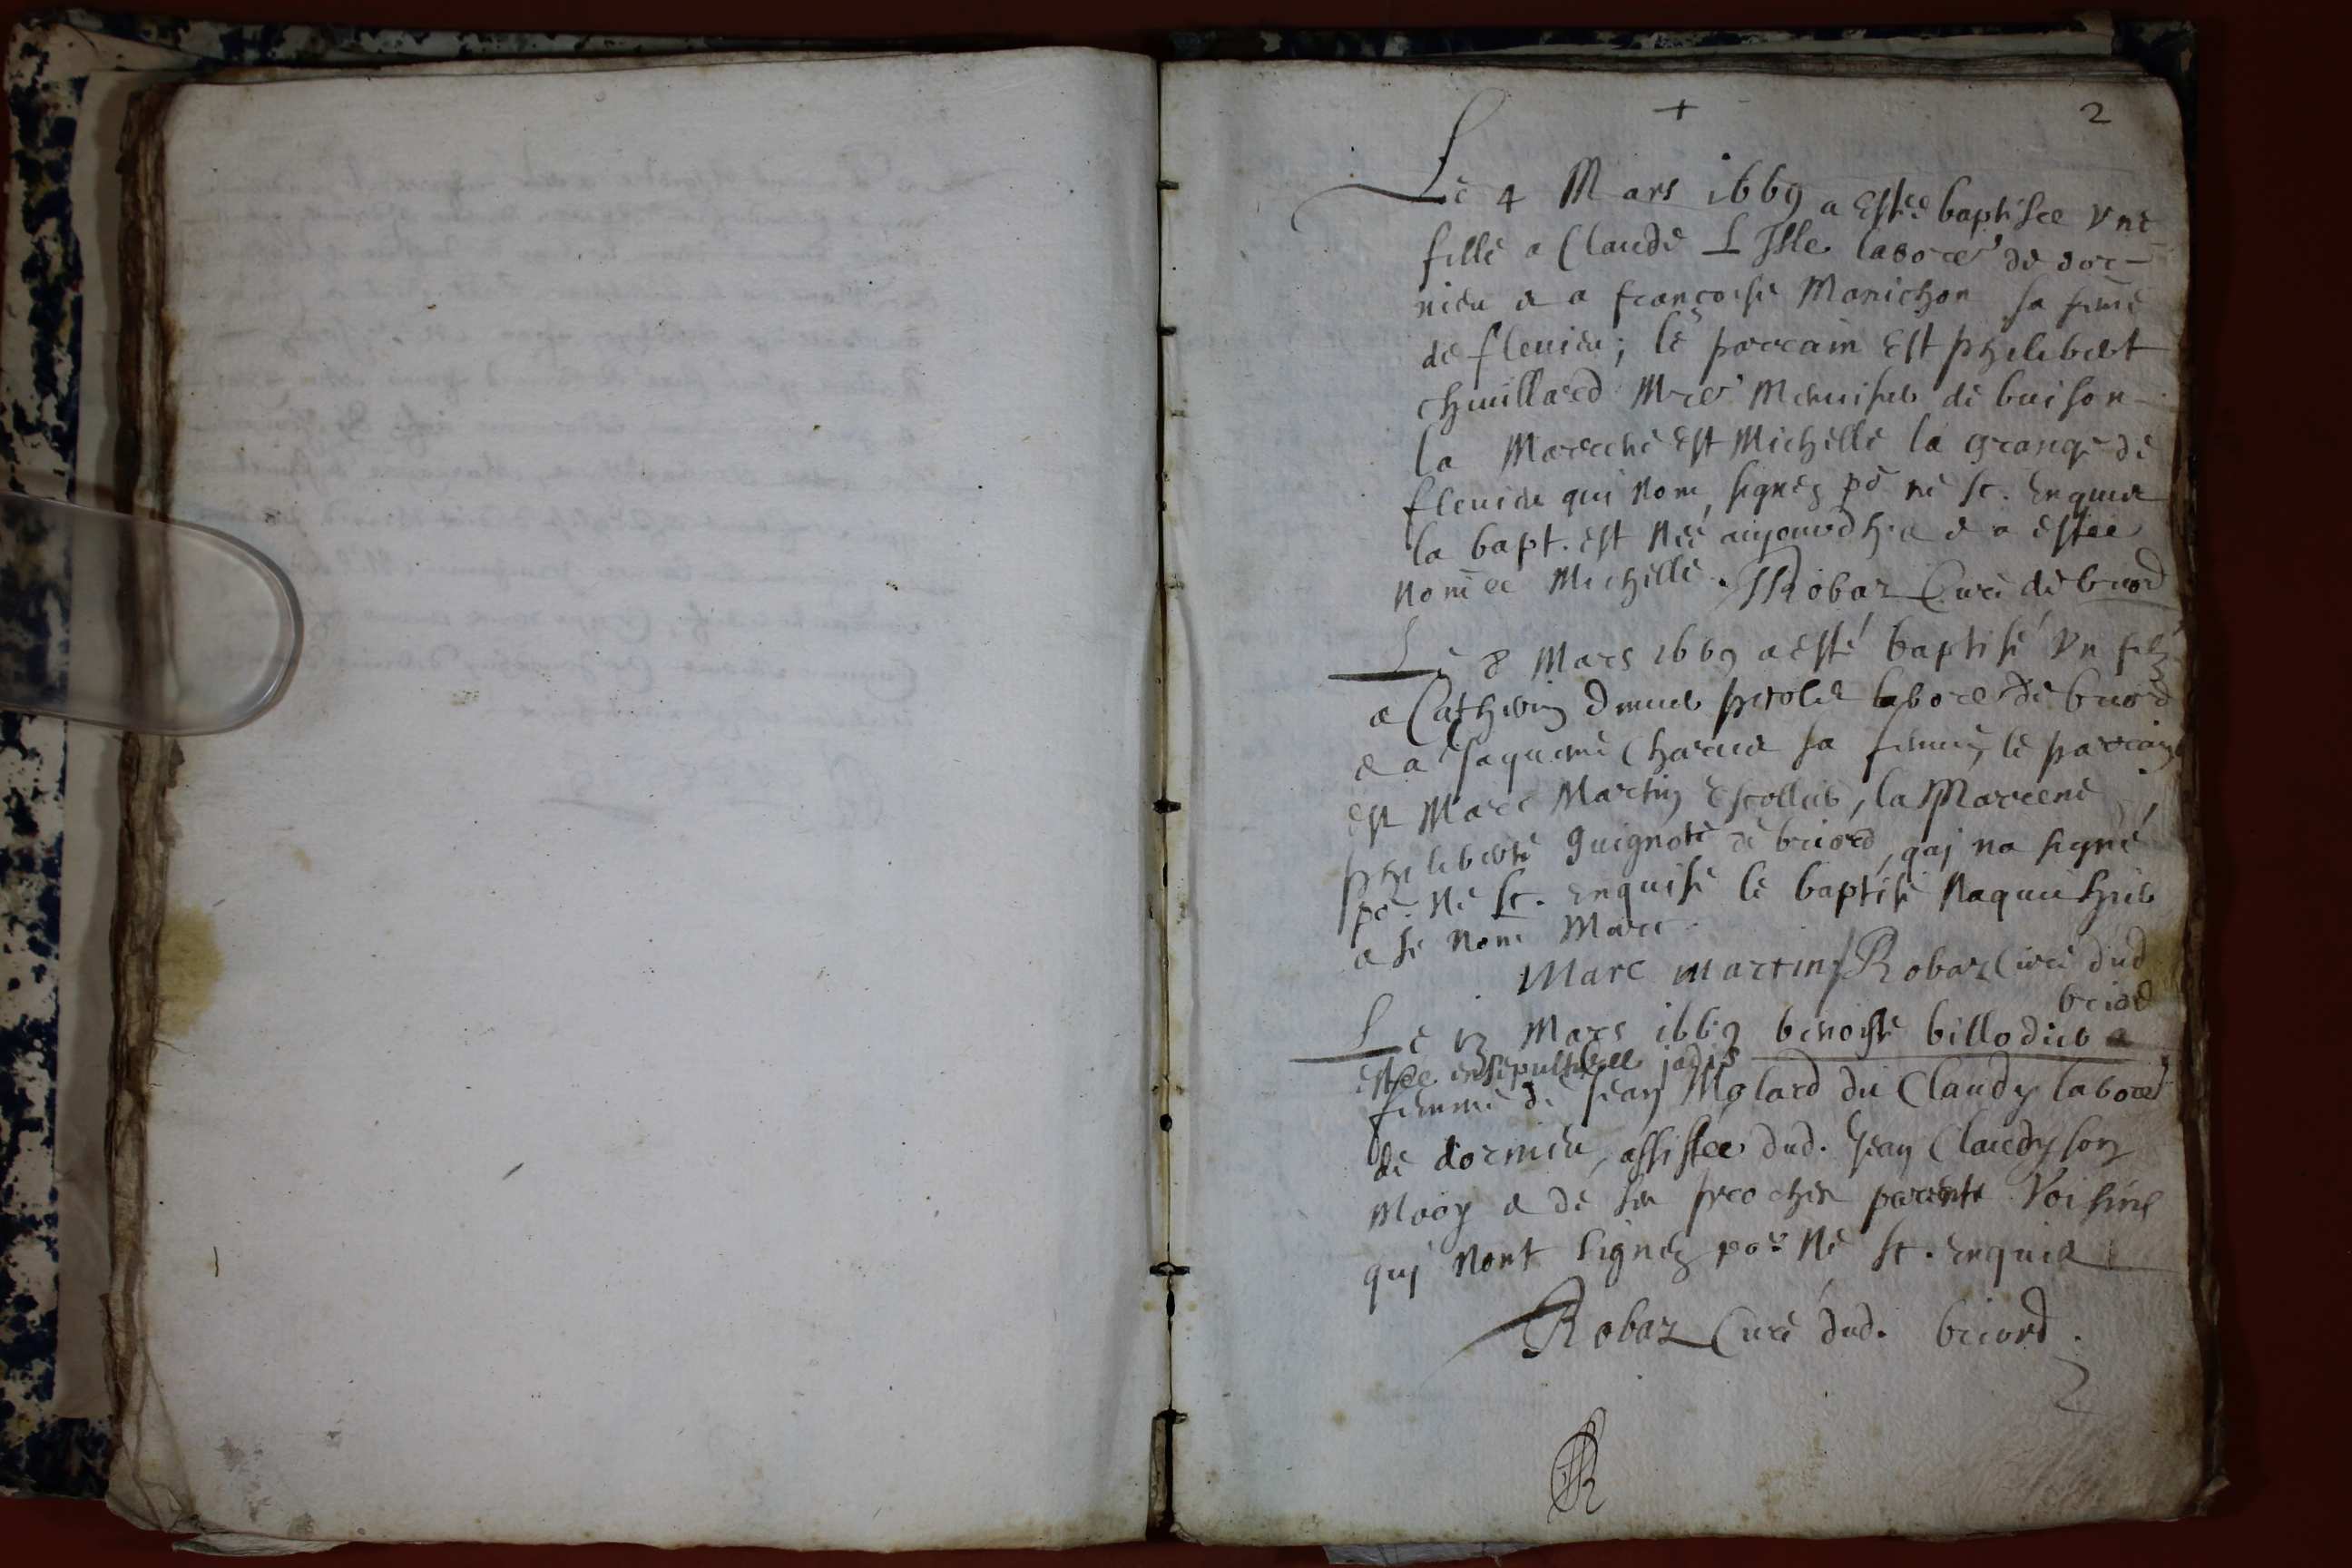 + 2
Le 4 Mars 1669 a Estée baptisée Vne
fille a Claude L Isle labore^r de dor-
nieu & a francoise Manichon sa feme
de fleuieu; le parrain Est philibert
chuillard M^re Menuisier de buison
la Marrene Est Michelle la grange de
fleuieu qui nont signés po^r ne sc. Enquis
la bapt. Est Née aujourdhui & a Estée
Nomee Michelle. JRobaz Curé de briord
Le 8 Mars 1669 a esté baptisé Vn filz
a Cathelin labore^r de briord
& a Jaqueme Charue sa femme, le parrain
est Marc Martin Escollier, la Marrene
philiberte Guignote de briord, qui na signé
po^r Ne sc. Enquise le baptisé Naquit hier
a se nom Marc.
Marc martin JRobaz Curé dud
briord
Le 13 Mars 1669 benoiste billodier a
estée ensepulturee jadis
femme de Jean Molard du Claudy labore^r
de dornieu, assistee dud. Jean Claudy son
Mary & de ses proches parents Voisins
qui Nont Signés po^r Ne sc. Enquis
Robaz Curé dud. briord.
JR